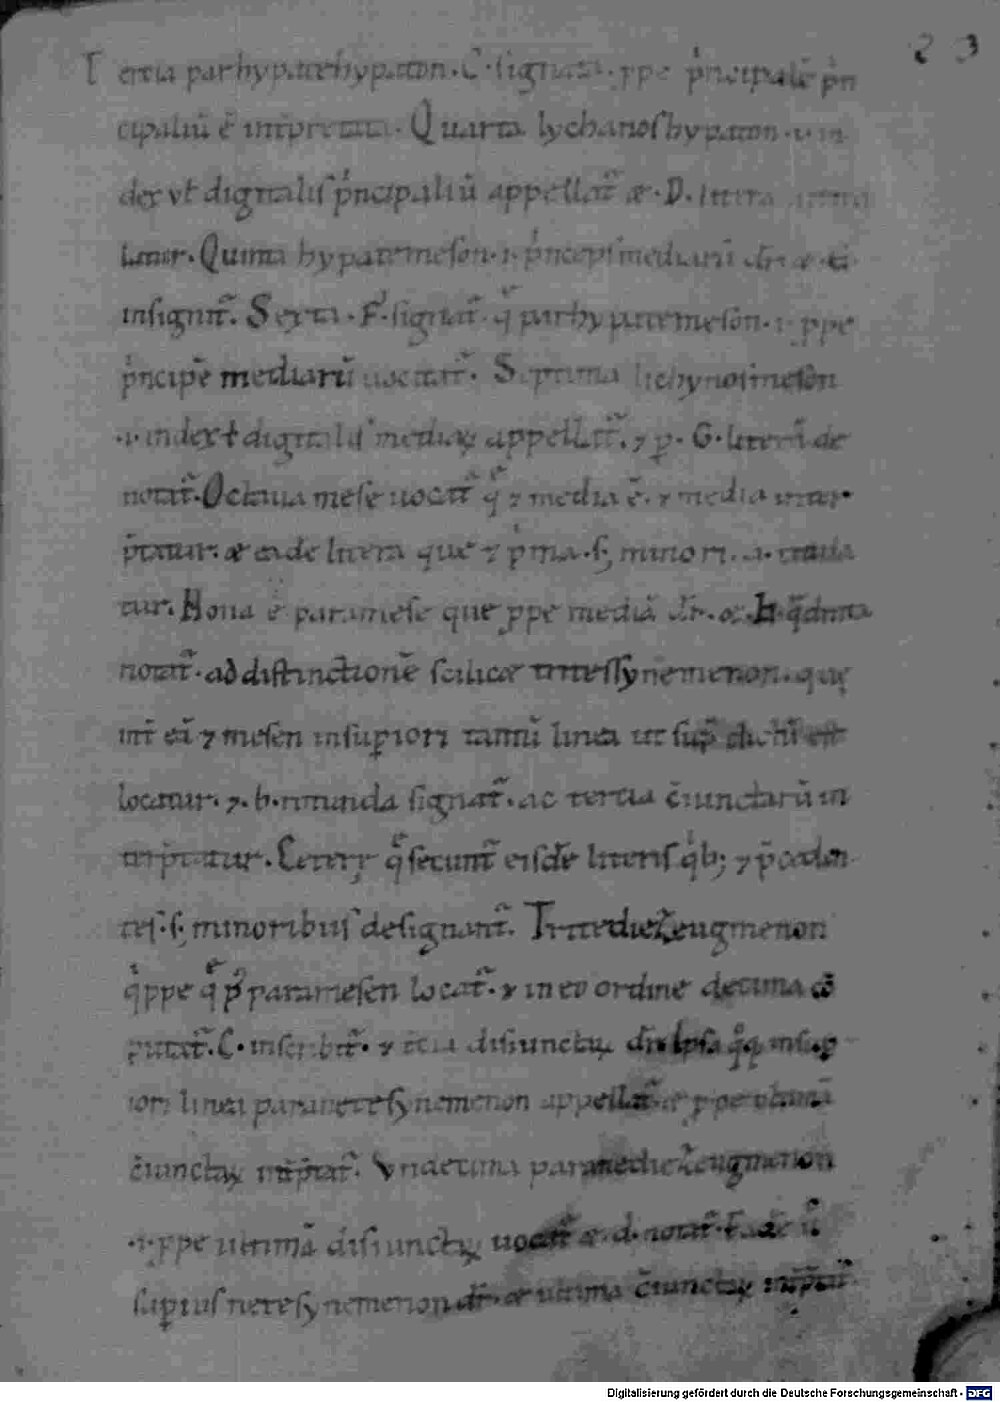 23
Tertia parhypatehypaton. C. signata. ꝓpe p̍ncipalē p̍n
cipaliū ē int̄p̄tata. Quarta lychanoshypaton .i. in
dex vł digitalis p̍ncipaliū appellat̄ & .D. littera
Quinta hypatemeson .i. p̍nceps mediarū dr̄ &
insignit̄. Sexta .F. signat̄. q̄ parhypatemeson .i. ꝓpe
p̍ncipē mediarū uocitat̄. Septima lichynosmeson
.i. index ł digitalis mediaꝝ appellat̄. ⁊ ꝑ .G. literā de
notat̄. Octaua mese uocat̄ q̄ ⁊ media ē. ⁊ media inter
p̄tatur. & eadē litera que ⁊ p̍ma .s; minori .a. titula
tur. Nona ē paramese que ꝓpe mediā dr̄. & .h. q̄drata
notat̄. ad distinctionē scilic& tritessynemenon. quę
int̄ eā ⁊ mesen insuꝑiori tantū linea ut sup̄ dictū est
locatur. ⁊ .b. rotunda signat̄. ac tertia c̄iunctarū in
terp̄tatur. Ceterę q̄ secunt̄ eisdē literis q̍b; ⁊ p̄ceden
tes .s; minoribus designant̄. Tritediezeugmenon
q̍ppe q̄ p̄ paramesen locat̄. ⁊ in eo ordine decima cō
putat̄. C. inscribit̄. ⁊ tc̄ia disiunctaꝝ insuꝑ
iori linea paranetesynemenon appellat̄ & ꝓpe ultimā
c̄iunctaꝝ int̄p̄tat̄. Vndecima paranediezeugmenon
.i. ꝓpe ultimā disiunctaꝝ uocat̄ & .d. notat̄.
suꝑius netesynemenon dr̄. & ultima c̄iunctaꝝ int̄p̄tat̄.
Digitalisierung gefördert durch die Deutsche Forschungsgemeinschaft - DFG